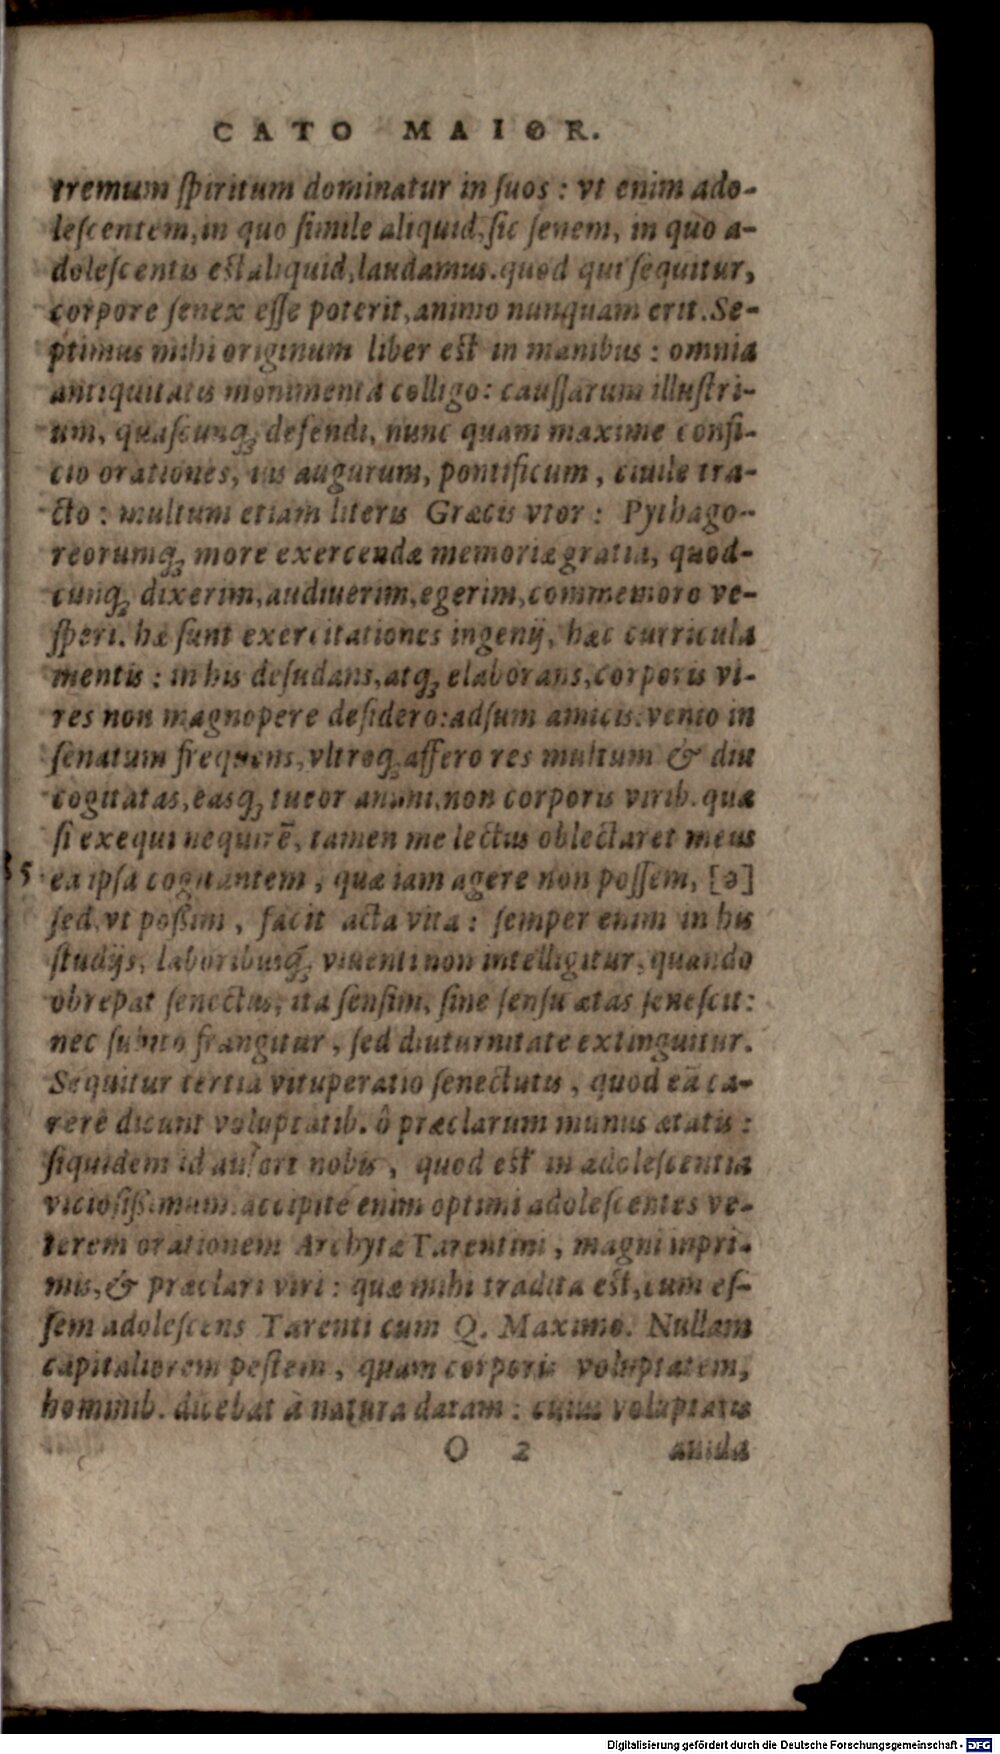 CATO MAIOR.
tremum ſpiritum dominatur in ſuos : vt enim ado-
leſcentem, in quo ſimile aliquid, ſic ſenem, in quo a-
doleſcentis est aliquid, laudamus. quod qui ſequitur,
corpore ſenex eſſe poterit, animo nunquam erit. Se-
ptimus mihi originum liber est in manibus : omnia
antiquitatis monimenta colligo: cauſſarum illuſtri-
um, quaſcunq; defendi, nunc quam maxime confi-
cio orationes, ius augurum, pontificum, ciuile tra-
cto : multum etiam literis Græcis vtor : Pythago-
reorumq; more exercendæ memoriæ gratia, quod-
cunq; dixerim, audiuerim, egerim, commemoro ve-
ſperi. hæ ſunt exercitationes ingenij, hæc curricula
mentis : in his deſudans, atq; elaborans, corporis vi-
res non magnopere deſidero: adſum amicis. venio in
ſenatum frequens, vltroq; affero res multum & diu
cogitatas, easq; tueor animi, non corporis virib. quæ
ſi exequi nequirē, tamen me lectus oblectaret meus
35 ea ipſa cogitantem, quæ iam agere non poſſem, [ɔ]
ſed, vt poßim, facit acta vita : ſemper enim in his
ſtudijs, laboribusq; viuenti non intelligitur, quando
obrepat ſenectus, ita ſenſim, ſine ſenſu ætas ſeneſcit:
nec ſubito frangitur, ſed diuturnitate extinguitur.
Sequitur tertia vituperatio ſenectutis, quod eā ca-
rere dicunt voluptatib. ô præclarum munus ætatis :
ſiquidem id aufert nobis, quod est in adoleſcentia
vicioſißimum. accipite enim optimi adoleſcentes ve-
terem orationem Archytæ Tarentini, magni inpri-
mis, & præclari viri : quæ mihi tradita est, cum eſ-
ſem adoleſcens Tarenti cum Q. Maximo. Nullam
capitaliorem peſtem, quam corporis voluptatem,
hominib. dicebat à natura datam : cuius voluptatis
O 2 auida
Digitalisierung gefördert durch die Deutsche Forschungsgemeinschaft - DFG